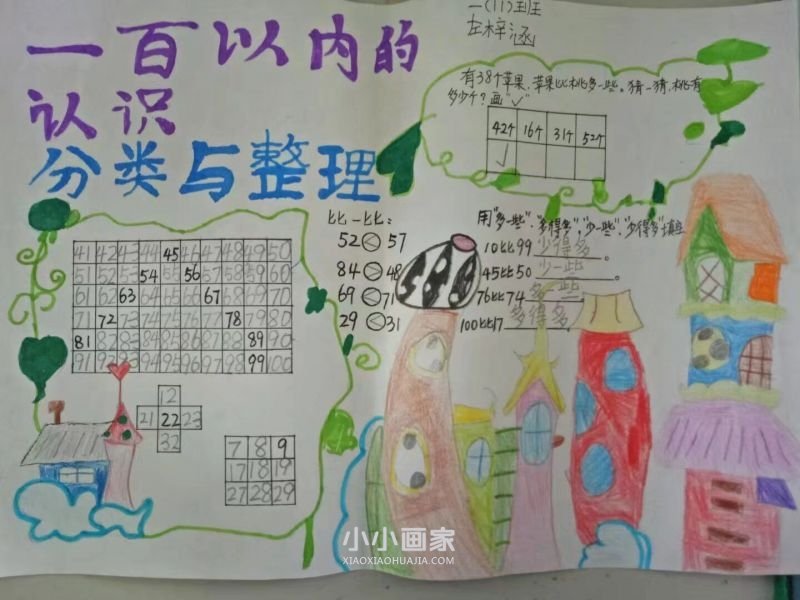 一百以内的
认识
分类与整理
一(11)班
左梓涵
有38个苹果,苹果比桃多一些。猜一猜,桃有
多少个?画"✓"
42个 16个 31个 52个
✓
41 42 43 44 45 46 47 48 49 50
51 52 53 54 55 56 57 58 59 60
61 62 63 64 65 66 67 68 69 70
71 72 73 74 75 76 77 78 79 80
81 82 83 84 85 86 87 88 89 90
91 92 93 94 95 96 97 98 99 100
12
21 22 23
32
7 8 9
17 18 19
27 28 29
比一比:
52 < 57
84 < 48
69 < 71
29 < 31
用"多一些"、"多得多"、"少一些"、"少得多"填空
10比99 少得多。
45比50 少一些。
76比74 多一些。
100比17 多得多。
小小画家
XIAOXIAOHUAJIA.COM